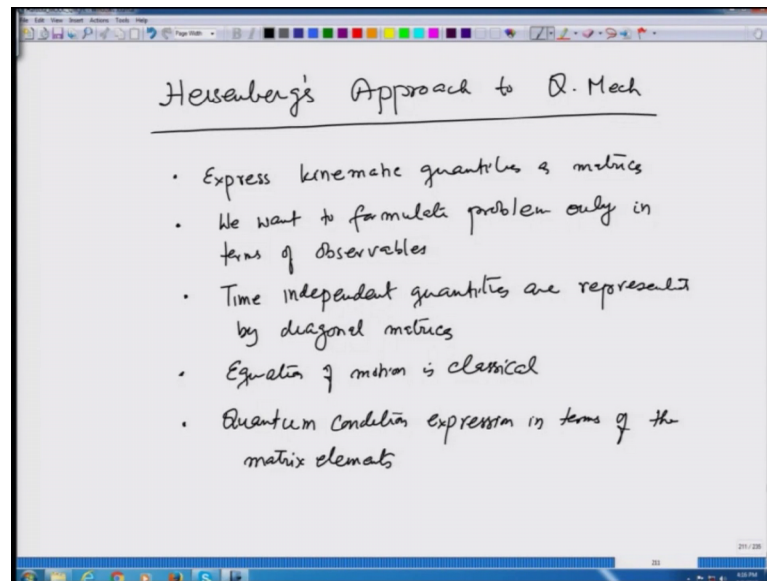 File Edit View Insert Actions Tools Help
Page Width
Heisenberg's Approach to Q. Mech
• Express kinematic quantities as matrics
• We want to formulate problem only in
terms of observables
• Time independent quantities are represented
by diagonal matrics
• Equation of motion is classical
• Quantum condition expression in terms of the
matrix elements
211 / 235
211
4:05 PM